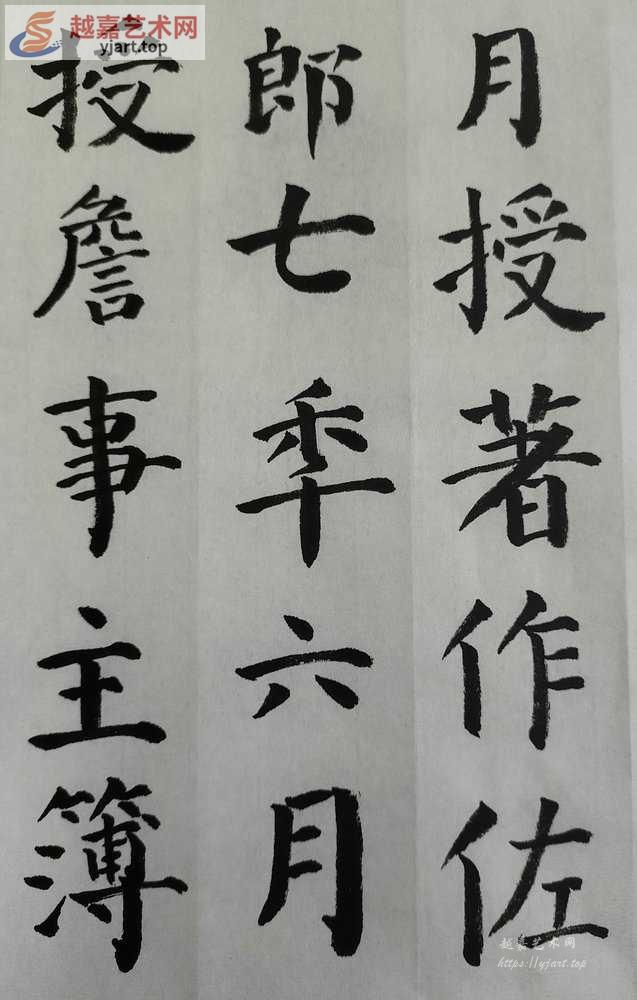 月授著作佐
郎七秊六月
授詹事主簿
越嘉艺术网
yjart.top
越嘉艺术网
https://yjart.top